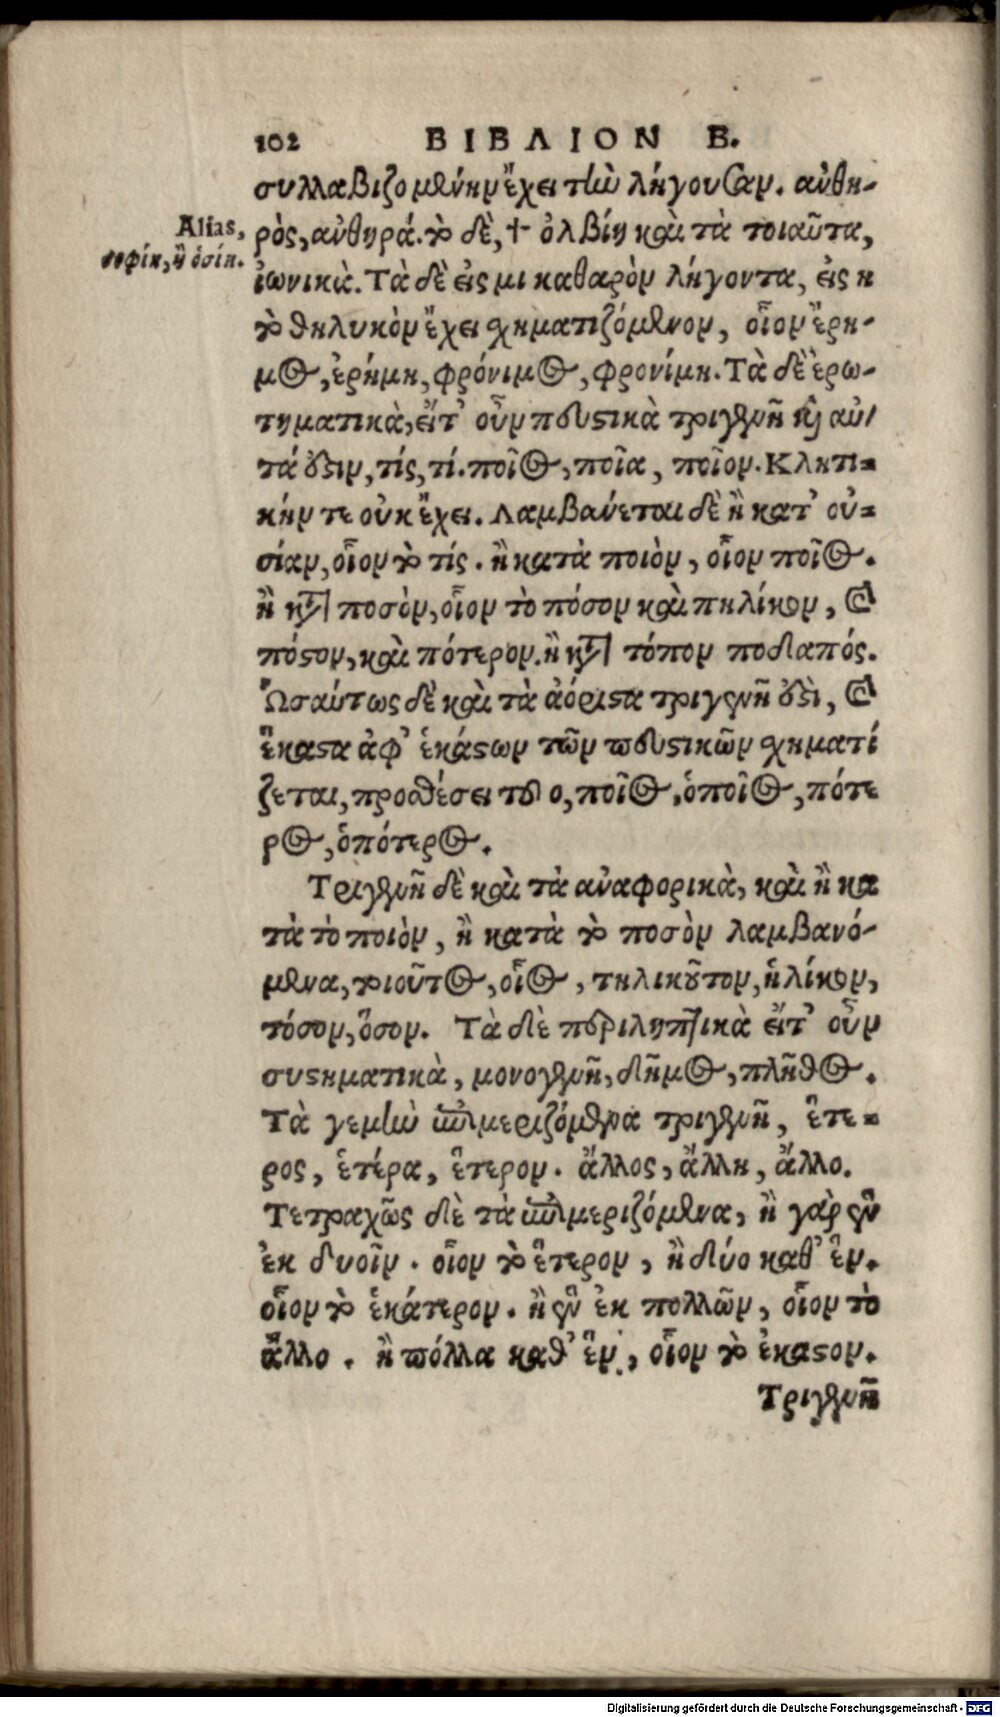 102 ΒΙΒΛΙΟΝ Β.
συλλαβιζομένην ἔχει τὴν λήγουσαν. ἀνθη-
Alias,
σοφίη, ἢ ὁσίη.
ρὸς, ἀνθηρά. τὸ δὲ, † ὀλβίη καὶ τὰ τοιαῦτα,
ἰωνικὰ. Τὰ δὲ εἰς μι καθαρὸν λήγοντα, εἰς η
τὸ θηλυκὸν ἔχει σχηματιζόμενον, οἷον ἔρη-
μος, ἐρήμη, φρόνιμος, φρονίμη. Τὰ δὲ ἐρω-
τηματικὰ, εἴτ' οὖν πευστικὰ τριγενῆ καὶ αὐ
τά ἐστιν, τίς, τί. ποῖος, ποῖα, ποῖον. Κλητι-
κήν τε οὐκ ἔχει. Λαμβάνεται δὲ ἢ κατ' οὐ-
σίαν, οἷον τὸ τίς. ἢ κατὰ ποιὸν, οἷον ποῖος.
ἢ κατὰ ποσὸν, οἷον τὸ πόσον καὶ πηλίκον, καὶ
πόστον, καὶ πότερον. ἢ κατὰ τόπον ποδαπός.
Ὡσαύτως δὲ καὶ τὰ ἀόριστα τριγενῆ ἐστὶ, καὶ
ἕκαστα ἀφ' ἑκάστων τῶν πευστικῶν σχηματί
ζεται, προσθέσει τοῦ ο, ποῖος, ὁποῖος, πότε
ρος, ὁπότερος.
Τριγενῆ δὲ καὶ τὰ ἀναφορικὰ, καὶ ἢ κα
τὰ τὸ ποιὸν, ἢ κατὰ τὸ ποσὸν λαμβανό-
μενα, τοιοῦτος, οἷος, τηλικοῦτον, ἡλίκον,
τόσον, ὅσον. Τὰ δὲ περιληπτικὰ εἴτ' οὖν
συστηματικὰ, μονογενῆ, δῆμος, πλῆθος.
Τὰ γεμὴν ἐπιμεριζόμενα τριγενῆ, ἕτε-
ρος, ἑτέρα, ἕτερον. ἄλλος, ἄλλη, ἄλλο.
Τετραχῶς δὲ τὰ ἐπιμεριζόμενα, ἢ γὰρ ἓν
ἐκ δυοῖν. οἷον τὸ ἕτερον, ἢ δύο καθ' ἓν.
οἷον τὸ ἑκάτερον. ἢ ἓν ἐκ πολλῶν, οἷον τὸ
ἄλλο. ἢ πόλλα καθ' ἓν, οἷον τὸ ἑκαστον.
Τριγενῆ
Digitalisierung gefördert durch die Deutsche Forschungsgemeinschaft - DFG